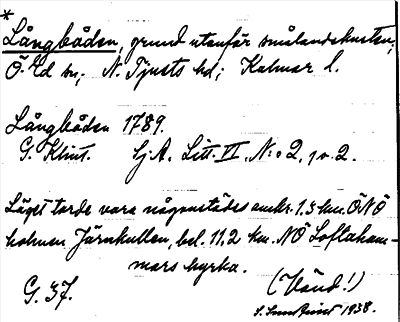 *
Långbåden, grund utanför smålandskusten;
Ö. Ed sn; N. Tjusts hd; Kalmar l.
Långbåden 1789.
G. Klint. Sj.A. Litt. VI. N:o 2, p. 2.
Läget torde vara någonstädes omkr. 1.5 km. ÖNÖ
holmen Järnkullen, bel. 11.2 km. NÖ Loftaham-
mars kyrka.
(Vänd!)
G. 37.
1938.